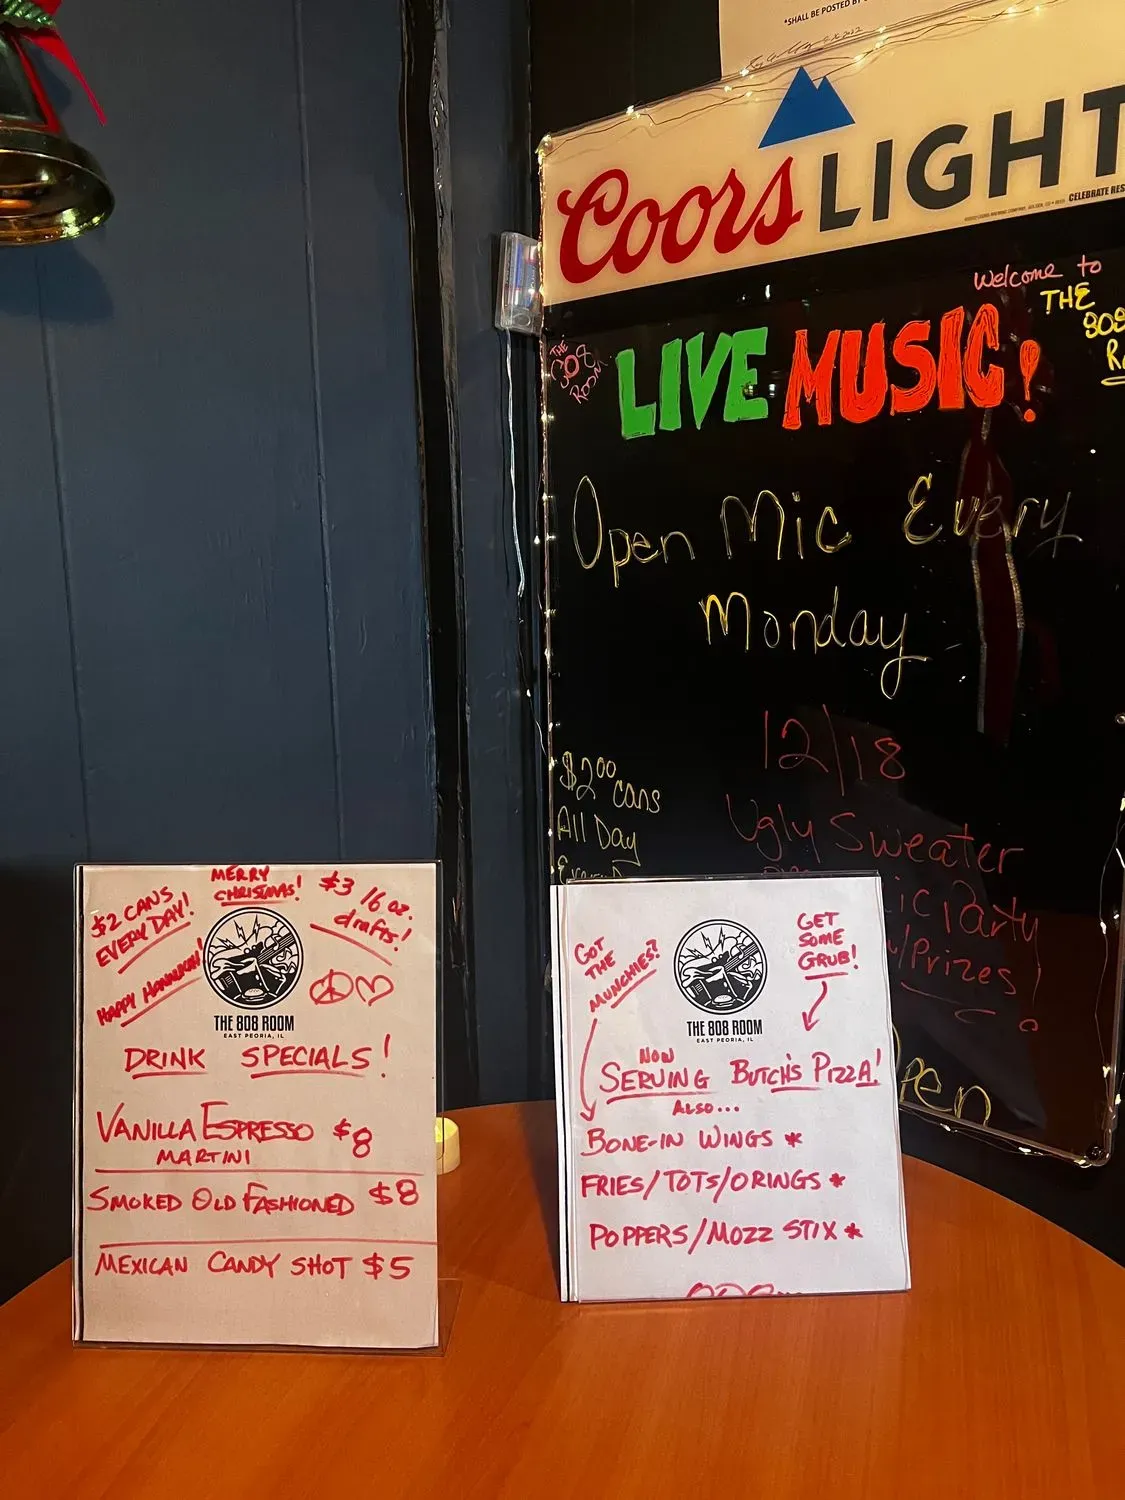 *SHALL BE POSTED BY
Coors LIGHT
CELEBRATE RES
Welcome to
THE
808
THE
808
ROOM
LIVE MUSIC!
Open Mic Every
Monday
12/18
Ugly Sweater
ic Party
w/Prizes!
$2.00 cans
All Day
pen
$2 CANS
EVERY DAY!
MERRY
CHRISTMAS!
$3 16 oz.
drafts!
HAPPY HANUKKAH!
THE 808 ROOM
EAST PEORIA, IL
DRINK SPECIALS!
VANILLA ESPRESSO $8
MARTINI
SMOKED OLD FASHIONED $8
MEXICAN CANDY SHOT $5
GOT
THE
MUNCHIES?
GET
SOME
GRUB!
THE 808 ROOM
EAST PEORIA, IL
NOW
SERVING BUTCH'S PIZZA!
ALSO...
BONE-IN WINGS *
FRIES/TOTS/ORINGS *
POPPERS/MOZZ STIX *